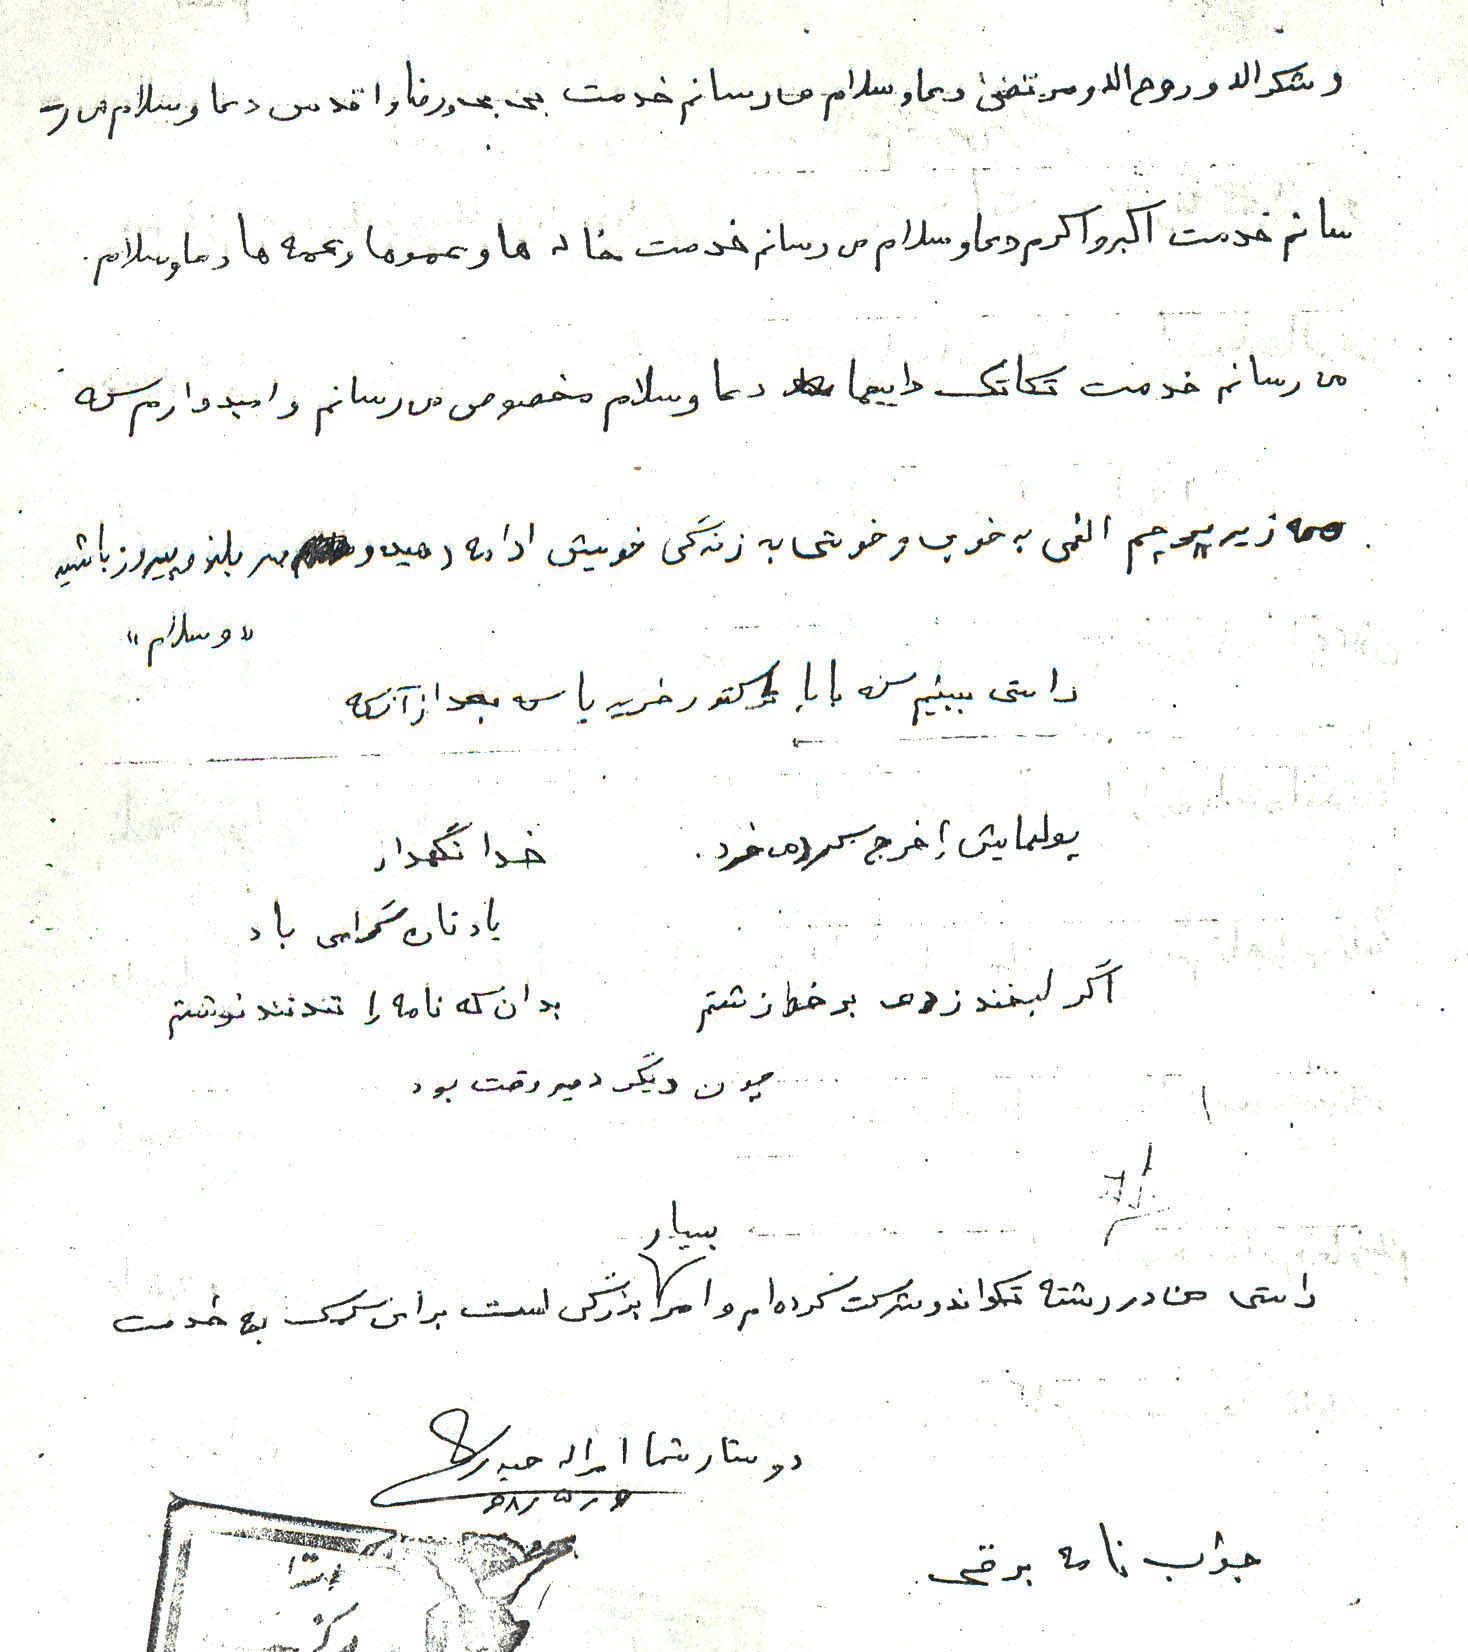 و شکراله و روح اله و مرتضی دعا و سلام می رسانم خدمت بی بی و رضا و اقدس دعا و سلام می ر
سانم خدمت اکبر و اکرم دعا و سلام می رسانم خدمت خاله ها و عموها و عمه ها دعا و سلام.
می رسانم خدمت تکاتک داییها دعا و سلام مخصوص می رسانم و امیدوارم که
همه زیر پرچم الهی به خوبی و خوشی به زندگی خویش ادامه دهید و سر بلند و پیروز باشید
«وسلام»
راستی ببینیم که بابا تراکتور خرید یا که بعد از آنکه
پولهایش را خرج کرد می خرد. خدا نگهدار
یادتان گرامی باد
اگر لبخند زدی بر خط زشتم بدان که نامه را تند تند نوشتم
چون دیگر دیر وقت بود
بسیار
راستی من در رشته تکواندو شرکت کرده ام و امر بزرگی است برای کمک به خدمت
دوستار شما امراله حیدری
۶۸/۵/۶
جواب نامه برقی